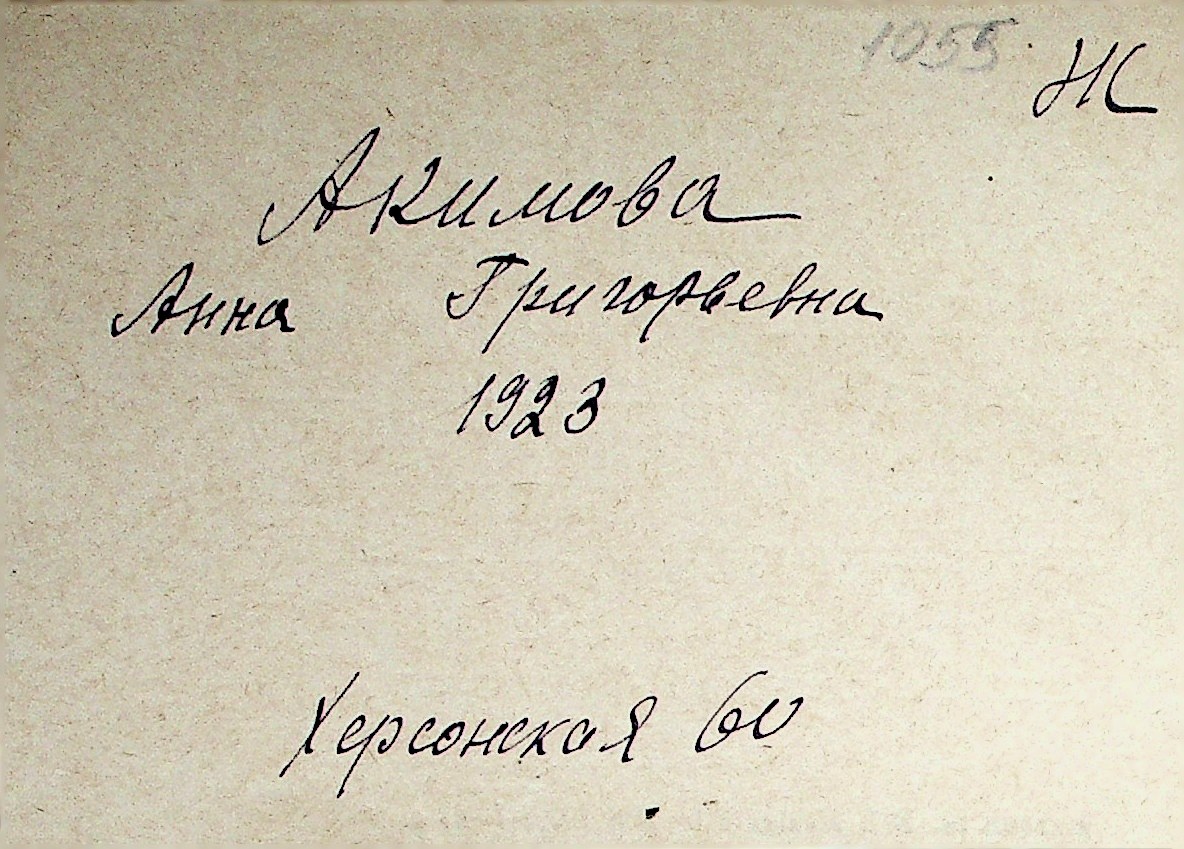 1055 Ж
Акимова
Анна Григорьевна
1923
Херсонская 60